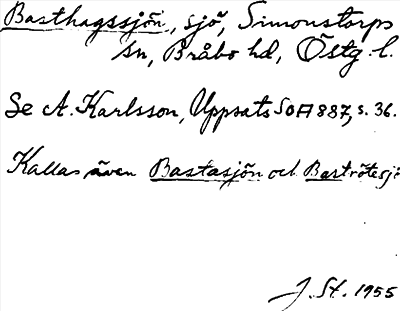 Basthagssjön, sjö, Simonstorps
sn, Bråbo hd, Östg. l.
Se A. Karlsson, Uppsats SOA 887, s. 36.
Kallas även Bastasjön och Baströtesjö
J. St. 1955